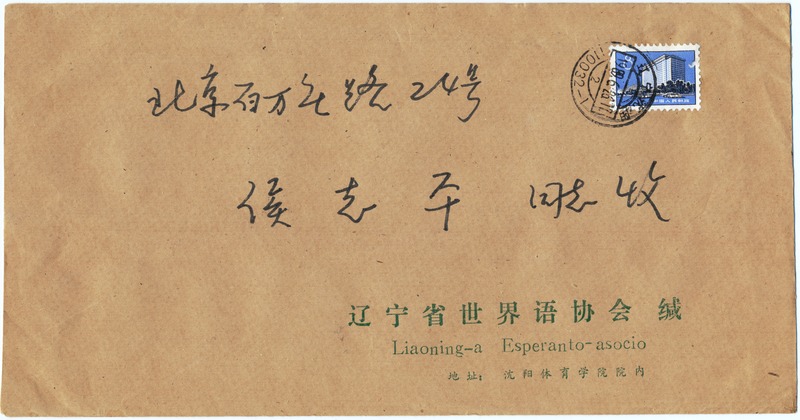 北京百万庄路24号
侯志平 同志收
辽宁省世界语协会 缄
Liaoning-a Esperanto-asocio
地址: 沈阳体育学院院内
110032-1